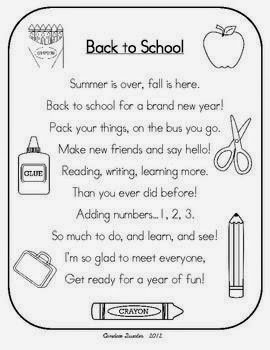 CRAYONS
Back to School
Summer is over, fall is here.
Back to school for a brand new year!
Pack your things, on the bus you go.
Make new friends and say hello!
GLUE
Reading, writing, learning more.
Than you ever did before!
Adding numbers...1, 2, 3.
So much to do, and learn, and see!
I'm so glad to meet everyone,
Get ready for a year of fun!
CRAYON
2012